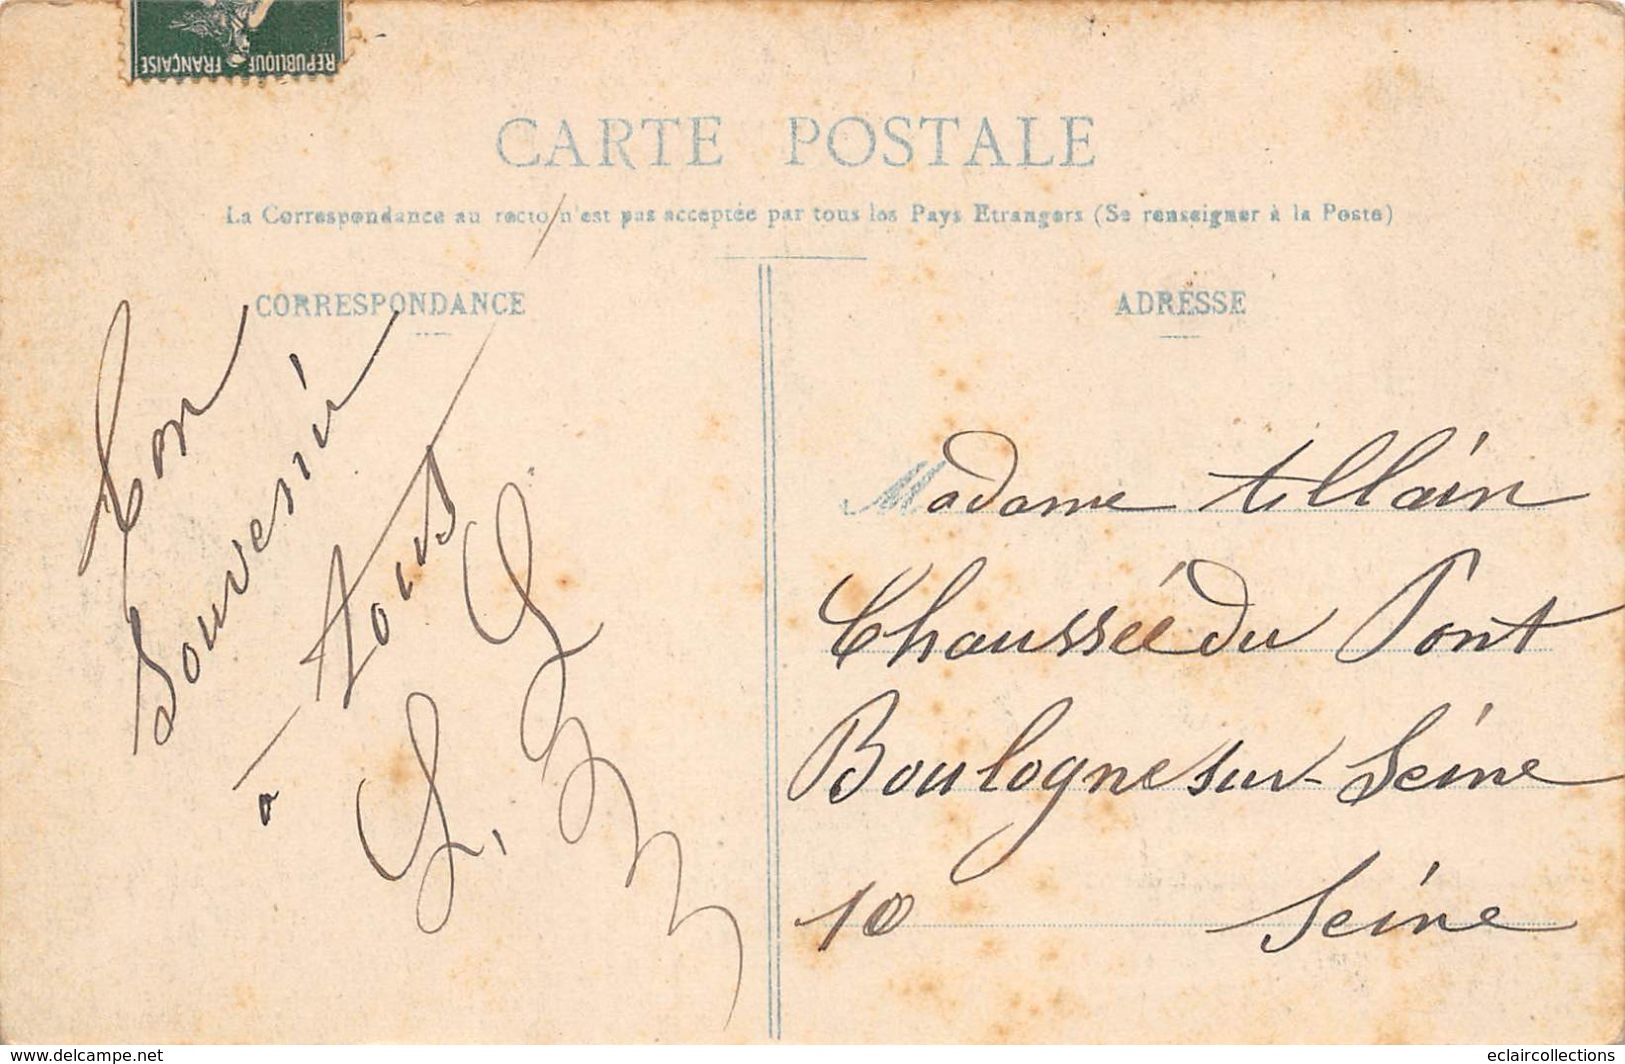 RÉPUBLIQUE FRANÇAISE
CARTE POSTALE
La Correspondance au recto n'est pas acceptée par tous les Pays Etrangers (Se renseigner à la Poste)
CORRESPONDANCE
Bon
Souvenir
à tous
L. L.
ADRESSE
Madame Allain
Chaussée du Pont
Boulogne sur-Seine
10 Seine
www.delcampe.net
eclaircollections